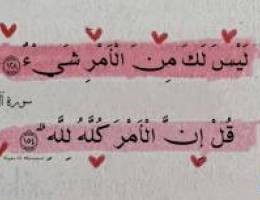 لَيْسَ لَكَ مِنَ الْأَمْرِ شَيْءٌ ١٢٨
سورة
قُلْ إِنَّ الْأَمْرَ كُلَّهُ لِلَّهِ ۗ ١٥٤